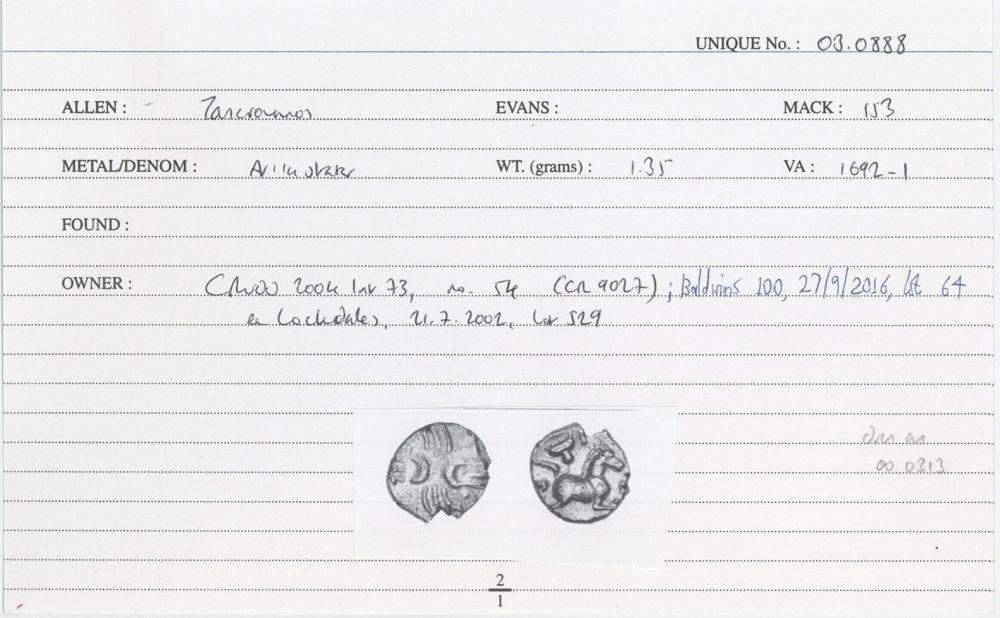 UNIQUE No. : 03.0888
ALLEN : Tasciovanos EVANS : MACK : 153
METAL/DENOM : AV 1/4 stater WT. (grams) : 1.35 VA : 1692-1
FOUND :
OWNER : 2004 73, no. 54 (CR 9027) ; Baldwins 100, 27/9/2016, lot 64
ex Lockdales, 21.7.2002, lot 529
00.0313
2
1